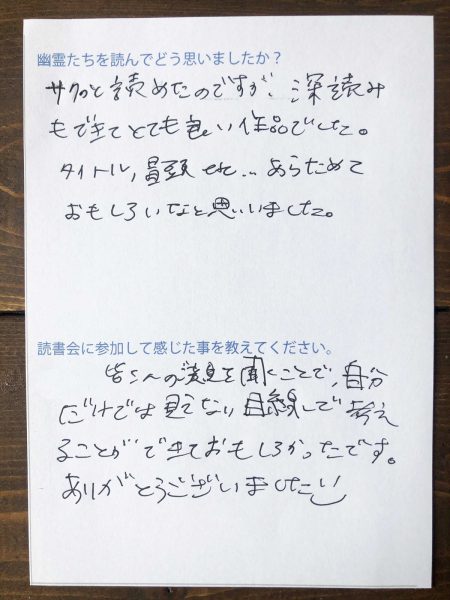 幽霊たちを読んでどう思いましたか？
サクッと読めたのですが、深読み
もできてとても良い作品でした。
タイトル，冒頭 etc... あらためて
おもしろいなと思いました。
読書会に参加して感じた事を教えてください。
皆さんの意見を聞くことで，自分
だけでは見えない目線で考え
ることができておもしろかったです。
ありがとうございました